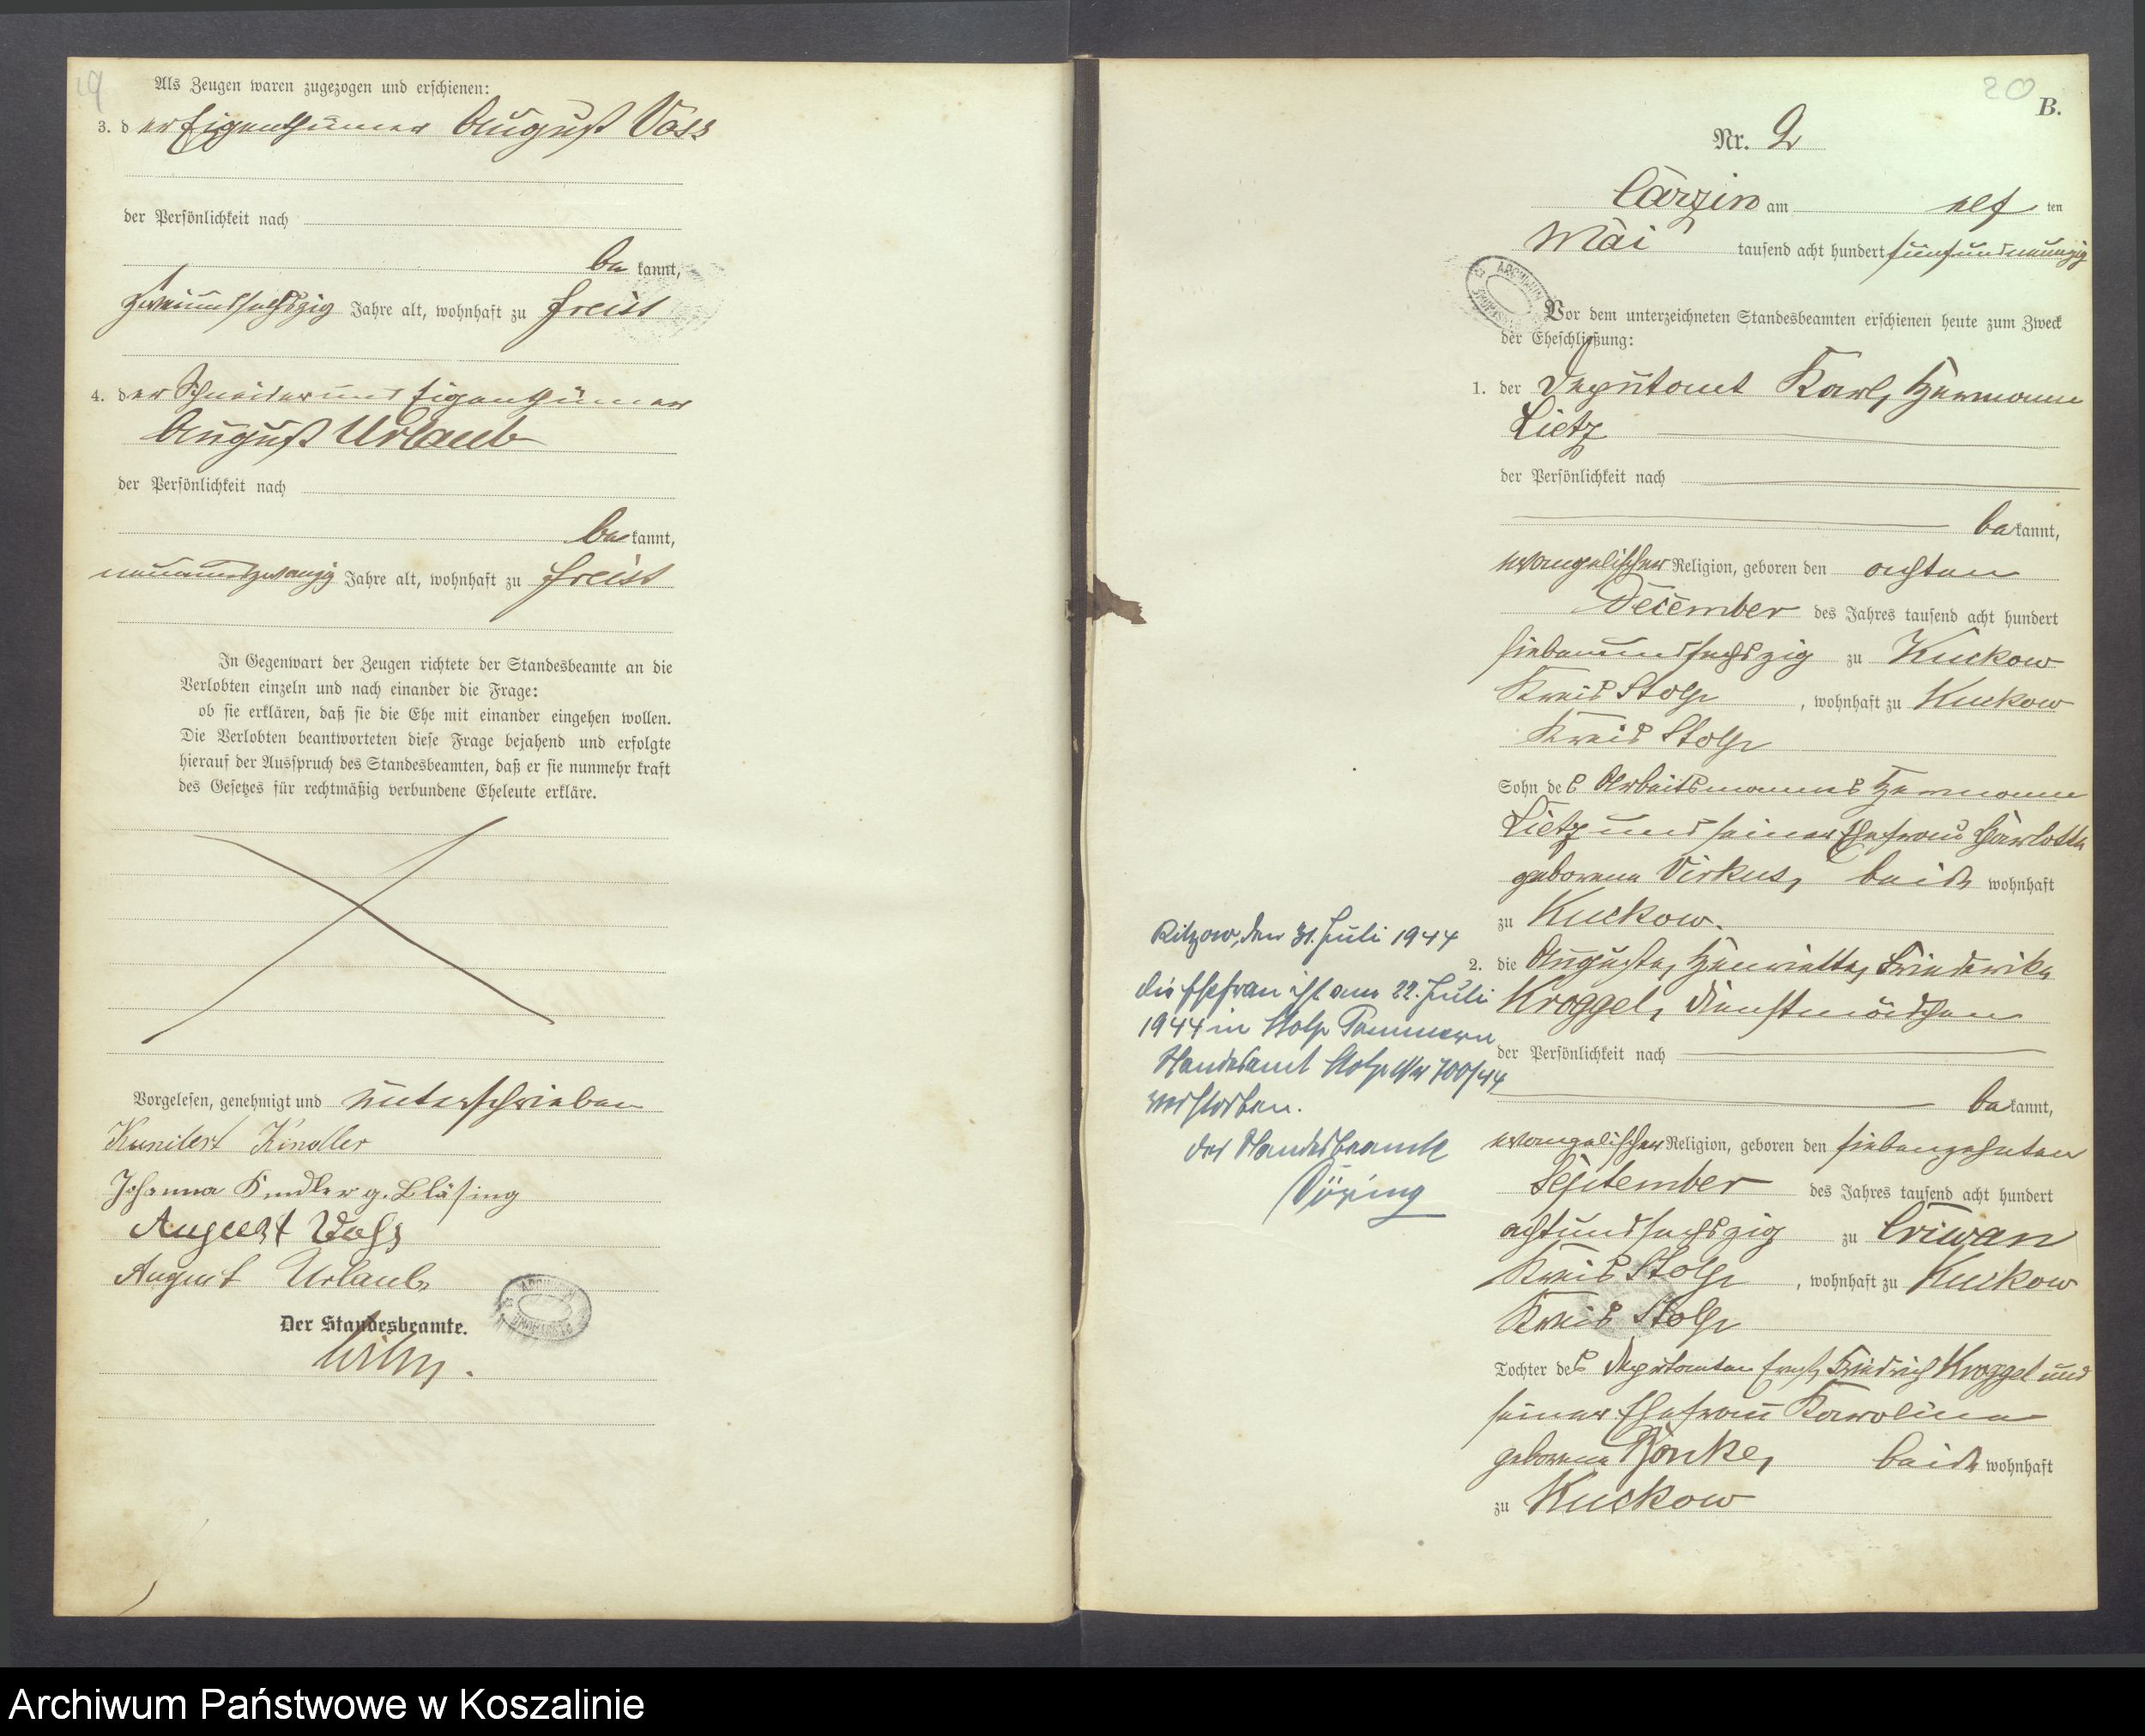 19
Als Zeugen waren zugezogen und erschienen:
3. der Eigenthümer August Voss
der Persönlichkeit nach
bekannt,
zweiundsechszig Jahre alt, wohnhaft zu Freist
4. der Schneider und Eigenthümer
August Urlaub
der Persönlichkeit nach
bekannt,
neunundzwanzig Jahre alt, wohnhaft zu Freist
In Gegenwart der Zeugen richtete der Standesbeamte an die
Verlobten einzeln und nach einander die Frage:
ob sie erklären, daß sie die Ehe mit einander eingehen wollen.
Die Verlobten beantworteten diese Frage bejahend und erfolgte
hierauf der Ausspruch des Standesbeamten, daß er sie nunmehr kraft
des Gesetzes für rechtmäßig verbundene Eheleute erkläre.
Vorgelesen, genehmigt und unterschrieben
Kindler
Johanna Kindler g. Bläsing
August Voß
August Urlaub
Der Standesbeamte.
20
B.
Nr. 2
Carzin am elf ten
Mai tausend acht hundert fünfundneunzig
Vor dem unterzeichneten Standesbeamten erschienen heute zum Zweck
der Eheschließung:
1. der Deputant Karl, Hermann
Lietz
der Persönlichkeit nach
bekannt,
evangelischer Religion, geboren den achten
December des Jahres tausend acht hundert
siebenundsechszig zu Kuckow
Kreis Stolp, wohnhaft zu Kuckow
Kreis Stolp
Sohn des Arbeitsmannes Hermann
Lietz und seiner Ehefrau Charlotte
geborene Virkus, beide wohnhaft
zu Kuckow.
2. die Auguste, Henriette, Friederike
Kroggel, Dienstmädchen
der Persönlichkeit nach
bekannt,
evangelischer Religion, geboren den siebenzehnten
September des Jahres tausend acht hundert
achtundsechszig zu Criwan
Kreis Stolp, wohnhaft zu Kuckow
Kreis Stolp
Tochter des Deputanten Ernst, Friedrich Kroggel und
seiner Ehefrau Karoline
geborene Rönke, beide wohnhaft
zu Kuckow
Ritzow, den 31. Juli 1944
Die Ehefrau ist am 22. Juli
1944 in Stolp Pommern
Standesamt Stolp Nr 700/44
verstorben.
Der Standesbeamte
Döring
Archiwum Państwowe w Koszalinie